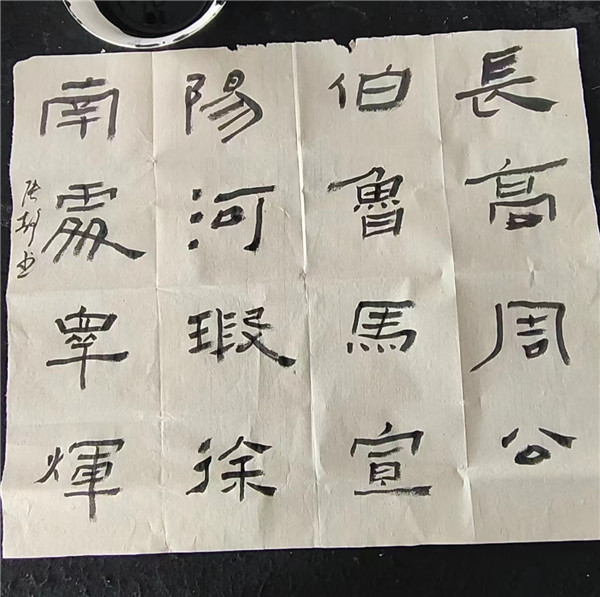 長高周公
伯魯馬宣
陽河瑕徐
南睪煇
书